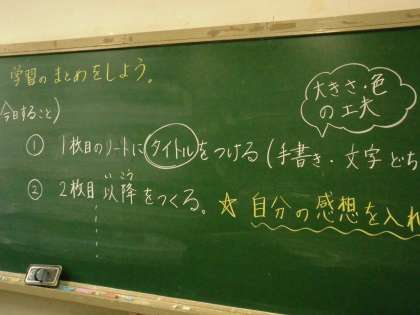 学習のまとめをしよう。
今日すること)
大きさ・色
の工夫
① 1枚目のノートにタイトルをつける(手書き・文字どち
② 2枚目以降をつくる。
いこう
☆自分の感想を入れ